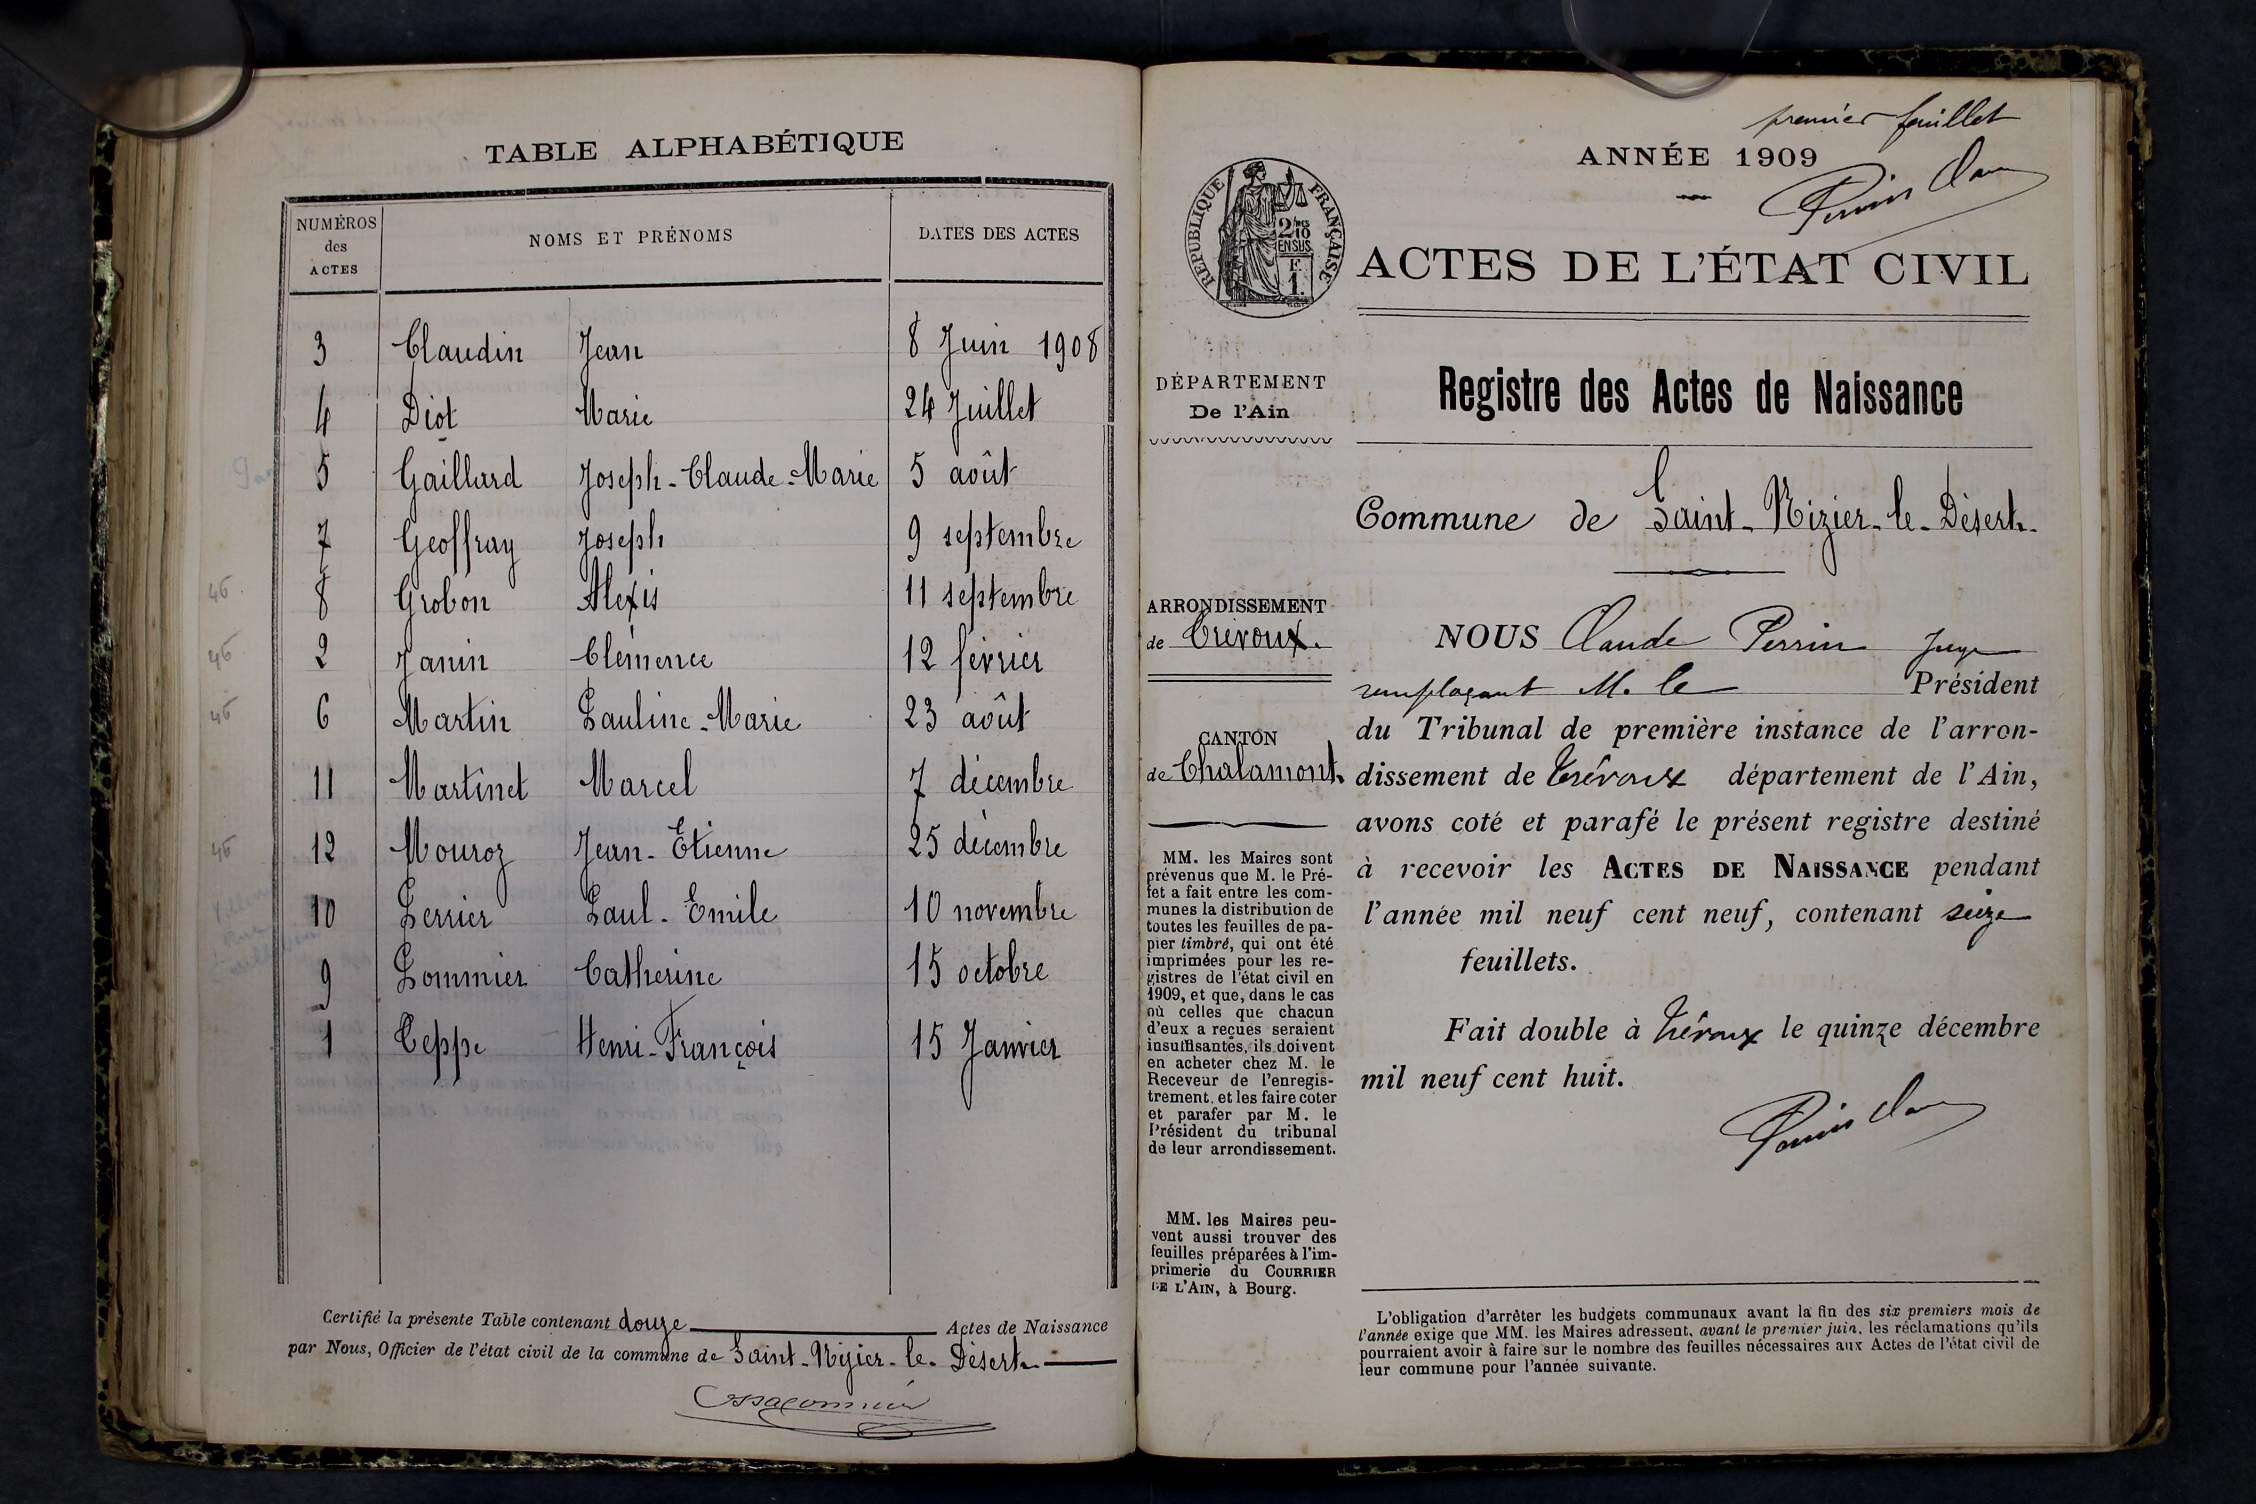 TABLE ALPHABÉTIQUE
NUMÉROS des ACTES
NOMS ET PRÉNOMS
DATES DES ACTES
3 Claudin Jean 8 Juin 1908
4 Diot Marie 24 Juillet
5 Gaillard Joseph-Claude-Marie 5 août
7 Geoffray Joseph 9 septembre
46 8 Grobon Alexis 11 septembre
46 2 Janin Clémence 12 février
46 6 Martin Pauline-Marie 23 août
11 Martinet Marcel 7 décembre
46 12 Mouroz Jean-Etienne 25 décembre
10 Perrier Paul-Emile 10 novembre
9 Pommier Catherine 15 octobre
1 Teppe Henri-François 15 Janvier
Certifié la présente Table contenant douze Actes de Naissance
par Nous, Officier de l'état civil de la commune de Saint-Nizier-le-Désert
premier feuillet
ANNÉE 1909
Perrin Claude
RÉPUBLIQUE FRANÇAISE
2/10 EN SUS
F. 1.
ACTES DE L'ÉTAT CIVIL
DÉPARTEMENT
De l'Ain
Registre des Actes de Naissance
Commune de Saint-Nizier-le-Désert
ARRONDISSEMENT
de Trévoux.
CANTON
de Chalamont
MM. les Maires sont
prévenus que M. le Pré-
fet a fait entre les com-
munes la distribution de
toutes les feuilles de pa-
pier timbré, qui ont été
imprimées pour les re-
gistres de l'état civil en
1909, et que, dans le cas
où celles que chacun
d'eux a reçues seraient
insuffisantes, ils doivent
en acheter chez M. le
Receveur de l'enregis-
trement, et les faire coter
et parafer par M. le
Président du tribunal
de leur arrondissement.
MM. les Maires peu-
vent aussi trouver des
feuilles préparées à l'im-
primerie du COURRIER
DE L'AIN, à Bourg.
NOUS Claude Perrin Juge
remplaçant M. le Président
du Tribunal de première instance de l'arron-
dissement de Trévoux département de l'Ain,
avons coté et parafé le présent registre destiné
à recevoir les ACTES DE NAISSANCE pendant
l'année mil neuf cent neuf, contenant seize
feuillets.
Fait double à Trévoux le quinze décembre
mil neuf cent huit.
Perrin Claude
L'obligation d'arrêter les budgets communaux avant la fin des six premiers mois de
l'année exige que MM. les Maires adressent, avant le premier juin, les réclamations qu'ils
pourraient avoir à faire sur le nombre des feuilles nécessaires aux Actes de l'état civil de
leur commune pour l'année suivante.